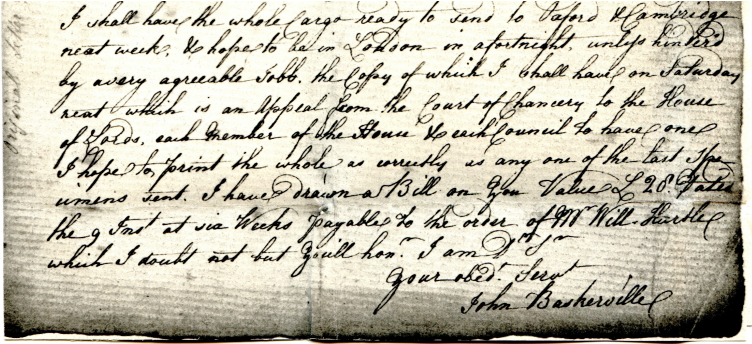 I shall have the whole Cargo ready to send to Oxford & Cambridge
next week, & hope to be in London in a fortnight, unless hinder'd
by a very agreeable Jobb, the Copy of which I shall have on Saturday
next which is an Appeal from the Court of Chancery to the House
of Lords, each Member of the House & each Council to have one
I hope to print the whole as correctly as any one of the last Spe
cimens sent. I have drawn a Bill on You Value £ 28. Dated
the 9 Inst at six Weeks Payable to the order of Mr Will.
which I doubt not but You'll honr. I am Dr Sr
Your obedt. Servt
John Baskerville